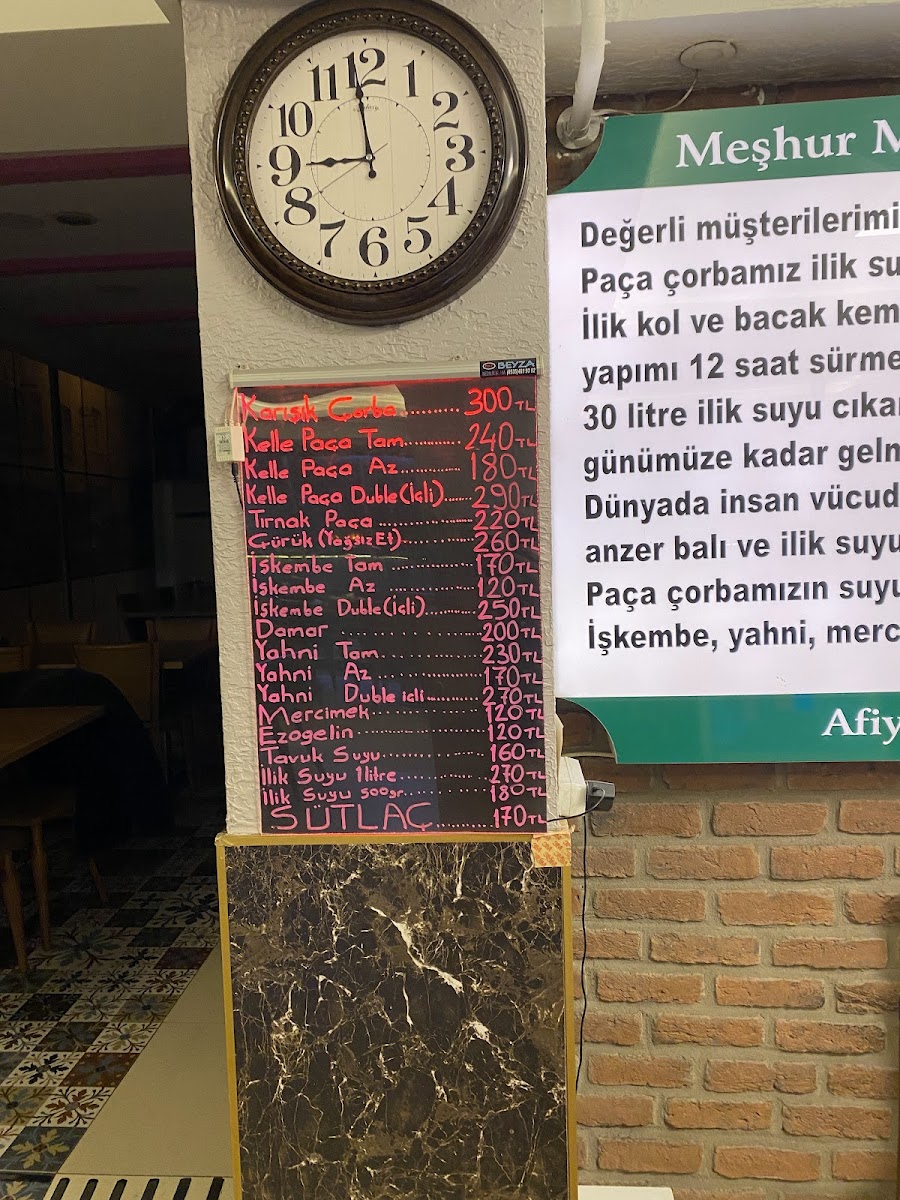 11 12 1
10 2
9 3
8 4
7 6 5
Meşhur M
Değerli müşterilerimi
Paça çorbamız ilik su
İlik kol ve bacak kem
yapımı 12 saat sürme
30 litre ilik suyu cıka
günümüze kadar gelm
Dünyada insan vücud
anzer balı ve ilik suyu
Paça çorbamızın suyu
İşkembe, yahni, merc
Afiy
BEYZA
Karışık Çorba.......... 300 TL
Kelle Paça Tam.......... 240 TL
Kelle Paça Az.......... 180 TL
Kelle Paça Duble(İçli)...... 290 TL
Tırnak Paça .......... 220 TL
Çürük (Yağsız Et).......... 260 TL
İşkembe Tam .......... 170 TL
İşkembe Az .......... 120 TL
İşkembe Duble(İçli)...... 250 TL
Damar .......... 200 TL
Yahni Tam.......... 230 TL
Yahni Az .......... 170 TL
Yahni Duble içli.......... 270 TL
Mercimek.......... 120 TL
Ezogelin .......... 120 TL
Tavuk Suyu .......... 160 TL
İlik Suyu 1 litre .......... 270 TL
İlik Suyu 500gr.......... 180 TL
SÜTLAÇ .......... 170 TL